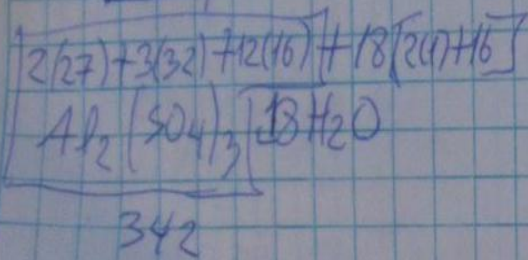 2(27)+3(32)+12(16)+18[2(1)+16]
Al2(SO4)3 18H2O
342